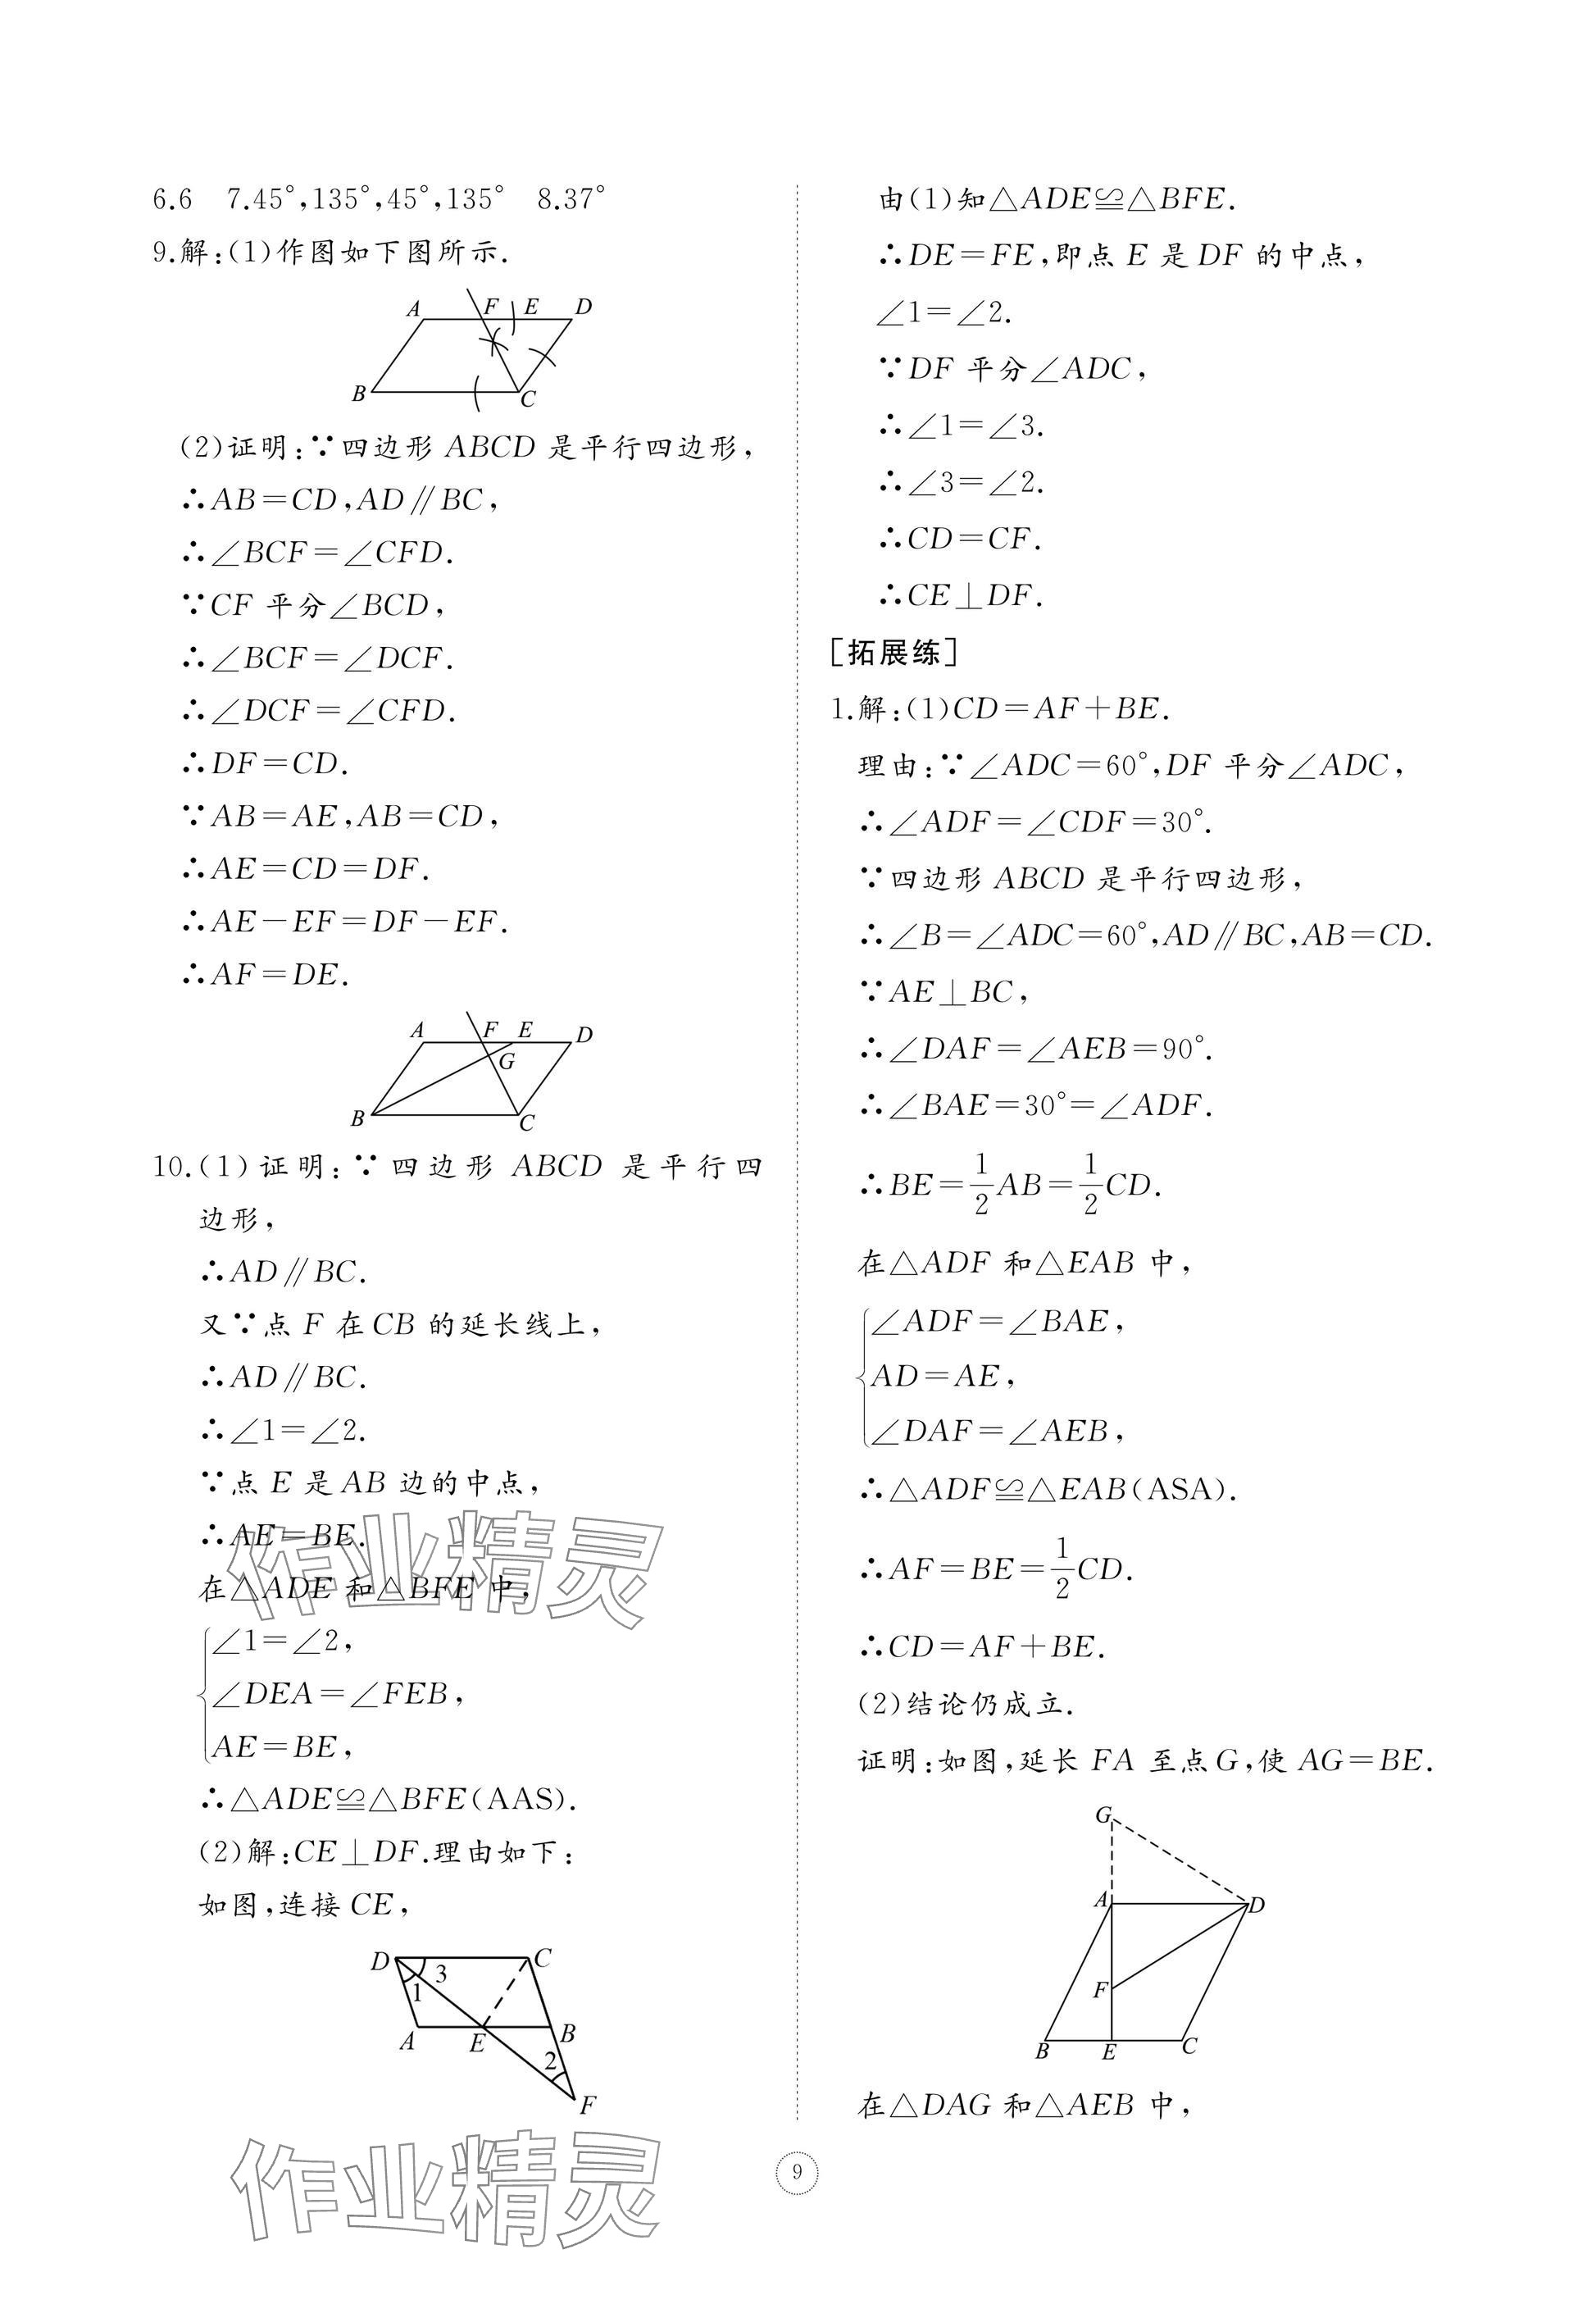 6.6　7.45°,135°,45°,135°　8.37°
9.解:(1)作图如下图所示.
A F E D
B C
(2)证明:∵四边形 ABCD 是平行四边形,
∴AB=CD,AD∥BC,
∴∠BCF=∠CFD.
∵CF 平分∠BCD,
∴∠BCF=∠DCF.
∴∠DCF=∠CFD.
∴DF=CD.
∵AB=AE,AB=CD,
∴AE=CD=DF.
∴AE-EF=DF-EF.
∴AF=DE.
A F E D
G
B C
10.(1)证明:∵四边形 ABCD 是平行四
边形,
∴AD∥BC.
又∵点 F 在CB 的延长线上,
∴AD∥BC.
∴∠1=∠2.
∵点 E 是AB 边的中点,
∴AE=BE.
在△ADE 和△BFE 中,
{∠1=∠2,
∠DEA=∠FEB,
AE=BE,
∴△ADE≌△BFE(AAS).
(2)解:CE⊥DF.理由如下:
如图,连接CE,
D C
3
1
A E B
2
F
由(1)知△ADE≌△BFE.
∴DE=FE,即点 E 是DF 的中点,
∠1=∠2.
∵DF 平分∠ADC,
∴∠1=∠3.
∴∠3=∠2.
∴CD=CF.
∴CE⊥DF.
[拓展练]
1.解:(1)CD=AF+BE.
理由:∵∠ADC=60°,DF 平分∠ADC,
∴∠ADF=∠CDF=30°.
∵四边形 ABCD 是平行四边形,
∴∠B=∠ADC=60°,AD∥BC,AB=CD.
∵AE⊥BC,
∴∠DAF=∠AEB=90°.
∴∠BAE=30°=∠ADF.
∴BE=1/2AB=1/2CD.
在△ADF 和△EAB 中,
{∠ADF=∠BAE,
AD=AE,
∠DAF=∠AEB,
∴△ADF≌△EAB(ASA).
∴AF=BE=1/2CD.
∴CD=AF+BE.
(2)结论仍成立.
证明:如图,延长 FA 至点G,使 AG=BE.
G
A D
F
B E C
在△DAG 和△AEB 中,
作业精灵
作业精灵
9